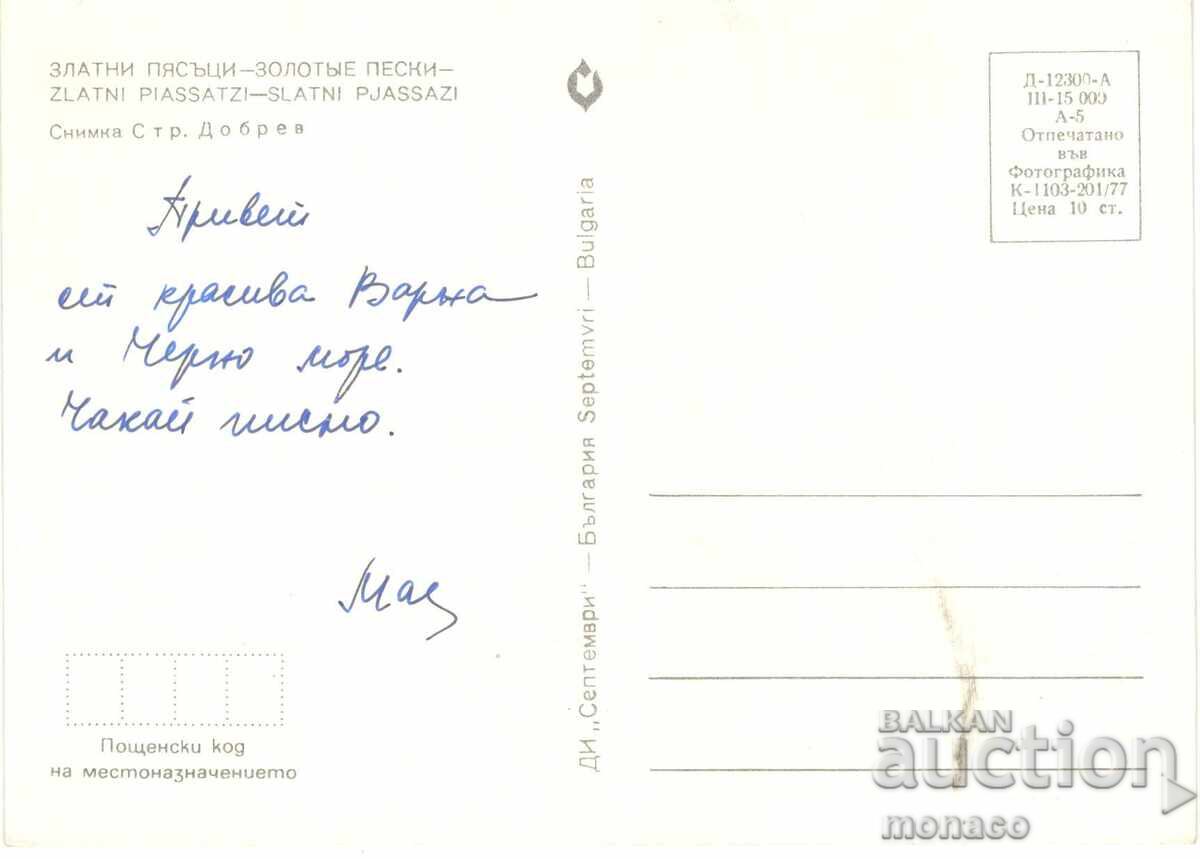 ЗЛАТНИ ПЯСЪЦИ—ЗОЛОТЫЕ ПЕСКИ—
ZLATNI PIASSATZI—SLATNI PJASSAZI
Снимка Стр. Добрев
Привет
от красива Варна
и Черно море.
Чакай писмо.
Пощенски код
на местоназначението
ДИ „Септември" — България Septemvri — Bulgaria
Д-12300-А
III-15 000
А-5
Отпечатано
във
Фотографика
К-1103-201/77
Цена 10 ст.
BALKAN
auction
monaco